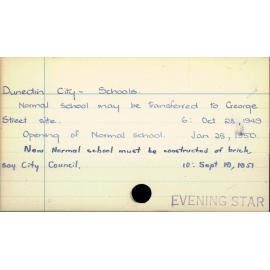 Dunedin City - Schools.
Normal school may be transferred to George
Street site. 6: Oct 28, 1949
Opening of Normal school. Jan 28, 1950.
New Normal school must be constructed of brick,
say City Council. 10: Sept 19, 1951
EVENING STAR